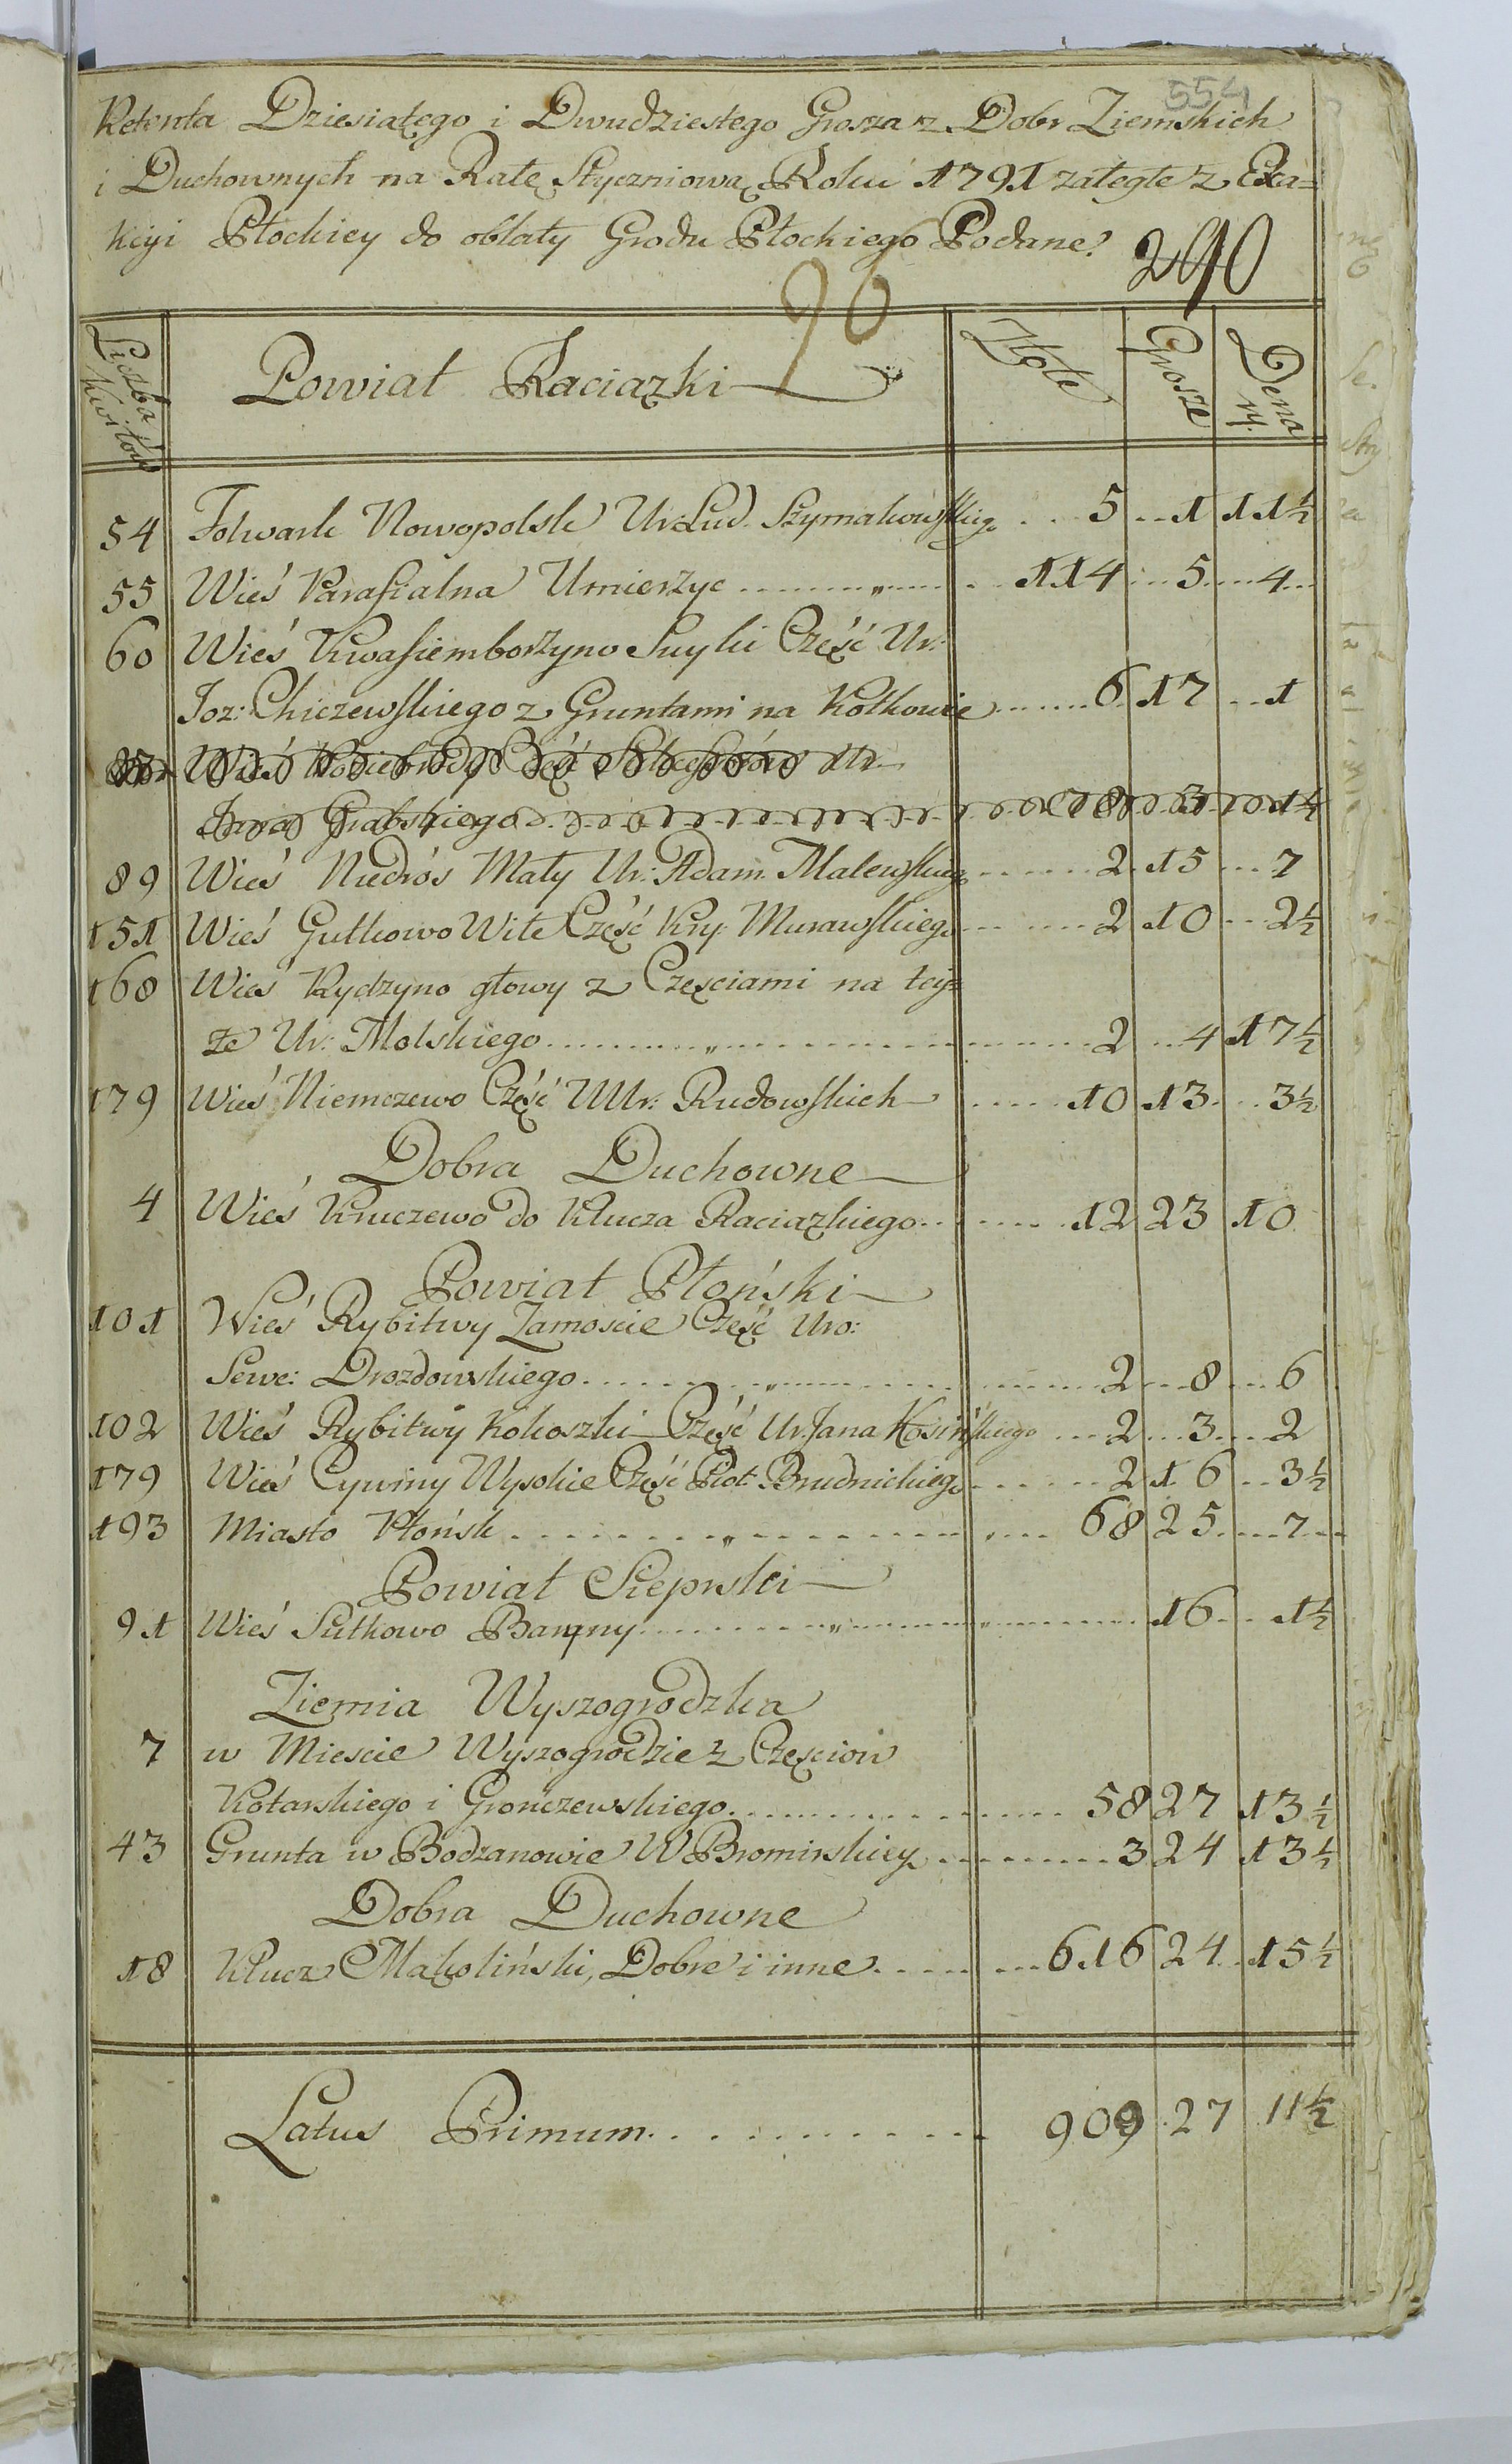 554
Retenta Dziesiątego i Dwudziestego Grosza z Dobr Ziemskich
i Duchownych na Ratę Styczniową Roku 1791 zaległe z Exa=
kcyi Płockiey do oblaty Grodu Płockiego Podane.
290
96
Liczba Kwitow Powiat Raciązki Złote Grosze Denary.
54 Folwark Nowopolsk Ur: Lud. Szymakowskieg. 5 1 11½
55 Wieś Parafialna Unierzyc 114 5 4
60 Wieś Kwasiemborzyno Suyki Część Ur:
Joz: Chiczewskiego z Gruntami na Kołkowie 6 17 1
Wieś Część Ur.
Grabskiego 8 3 1½
89 Wieś Niedrós Mały Ur: Adam. Malewskieg 2 15 7
151 Wieś Gutkowo Wite Część Kry. Murawskieg. 2 10 2½
168 Wieś Kydzyno głowy z Częsciami na tey=
że Ur: Molskiego 2 4 17½
179 Wieś Niemczewo Część UUr: Rudowskich 10 13 3½
Dobra Duchowne
4 Wieś Kruczewo do Klucza Raciązkiego 12 23 10
Powiat Płoński
101 Wieś Rybitwy Zamoscie Część Uro:
Sewe: Drozdowskiego 2 8 6
102 Wieś Rybitwy Kokoszki Część Ur. Jana Kosińskiego 2 3 2
179 Wieś Cywiny Wysokie Część Piot: Brudnickieg. 2 16 3½
193 Miasto Płońsk 68 25 7
Powiat Sieprski
91 Wieś Sułkowo Baryny 16 1½
Ziemia Wyszogrodzka
7 w Miescie Wyszogrodzie z Częsciow
Kotarskiego i Gronczewskiego 58 27 13½
43 Grunta w Bodzanowie W Bromirskiey 3 24 13½
Dobra Duchowne
18 Klucz Mąkoliński, Dobre i inne 616 24 15½
Latus Primum 909 27 11½